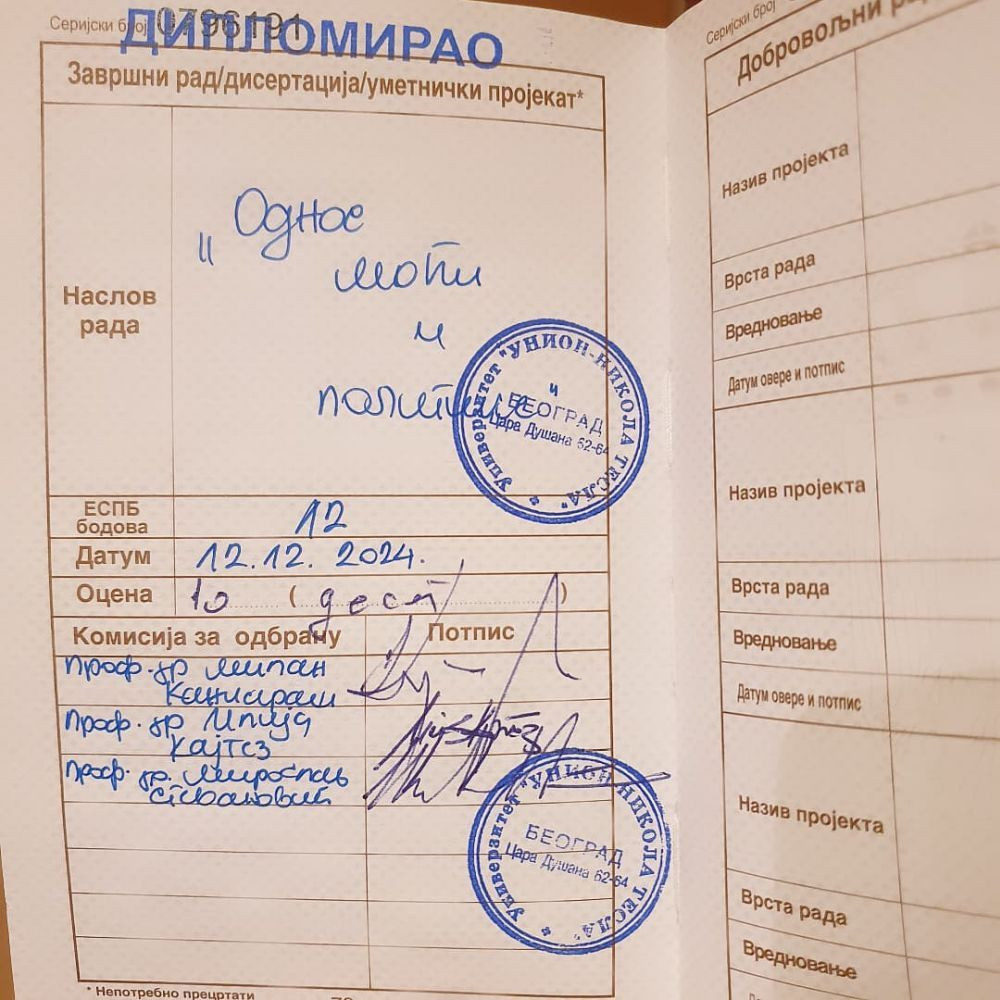 Серијски број 0796191
ДИПЛОМИРАО
Завршни рад/дисертација/уметнички пројекат*
Наслов рада
„Однос
моћи
и
политике
Универзитет "УНИОН-НИКОЛА ТЕСЛА"
и
БЕОГРАД
Цара Душана 62-64
ЕСПБ бодова
12
Датум
12.12.2024.
Оцена
10 (десет)
Комисија за одбрану
Потпис
проф. др Милан
проф. др Илија
Кајтез
проф. др. Мирослав
Стевановић
Универзитет "УНИОН-НИКОЛА ТЕСЛА"
БЕОГРАД
Цара Душана 62-64
* Непотребно прецртати
Серијски број
Добровољни
Назив пројекта
Врста рада
Вредновање
Датум овере и потпис
Назив пројекта
Врста рада
Вредновање
Датум овере и потпис
Назив пројекта
Врста рада
Вредновање